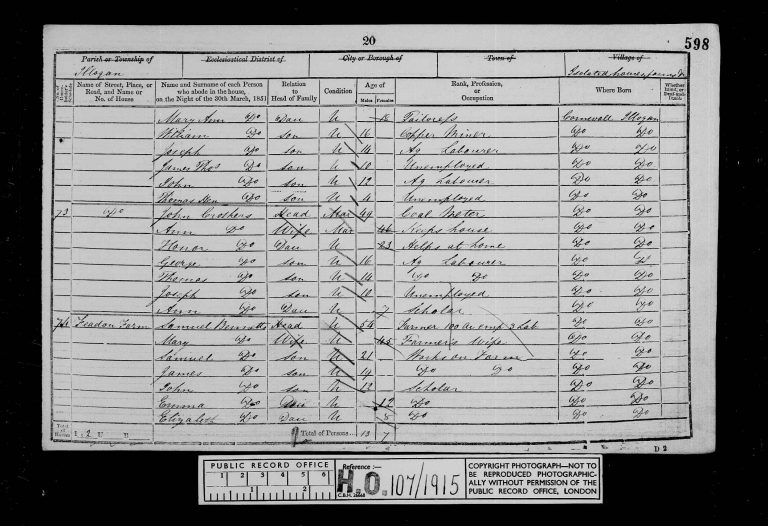 20
598
Parish or Township of
Ecclesiastical District of
City or Borough of
Town of
Village of
Illogan
Name of Street, Place, or Road, and Name or No. of House
Name and Surname of each Person who abode in the house, on the Night of the 30th March, 1851
Relation to Head of Family
Condition
Age of
Males
Females
Rank, Profession, or Occupation
Where Born
Mary Ann Do Dau U 18 Cornwall Illogan
William Do son U 16 Copper Miner Do Do
Joseph Do son U 14 Ag Labourer Do Do
James Thos Do son U 10 Unemployed Do Do
John Do son U 12 Ag Labourer Do Do
Thomas Do son U 4 Unemployed Do Do
73 Do John Crothers Head Mar 49 Coal Meter Do Do
Ann Do Wife Mar 46 Keeps house Do Do
Honor Do Dau U 23 Helps at home Do Do
George Do son U 16 Ag Labourer Do Do
Thomas Do son U 14 Do Do Do Do
Joseph Do son U 10 Unemployed Do Do
Ann Do Dau U 7 Scholar Do Do
74 Feadon Farm Samuel Bennetts Head U 54 Farmer 100 Ac emp 3 Lab Do Do
Mary Do Wife U 45 Farmer's Wife Do Do
Samuel Do Son U 21 Works on Farm Do Do
James Do son U 19 Do Do Do Do
John Do son U 12 Scholar Do Do
Emma Do Dau U 12 Do Do Do
Elizabeth Do Dau U 8 Do Do Do
Total of Persons 13 7
D 2
PUBLIC RECORD OFFICE
1 2 3 4 5 6
1 2
Reference:-
H.O. 107/1915
COPYRIGHT PHOTOGRAPH—NOT TO
BE REPRODUCED PHOTOGRAPHIC-
ALLY WITHOUT PERMISSION OF THE
PUBLIC RECORD OFFICE, LONDON